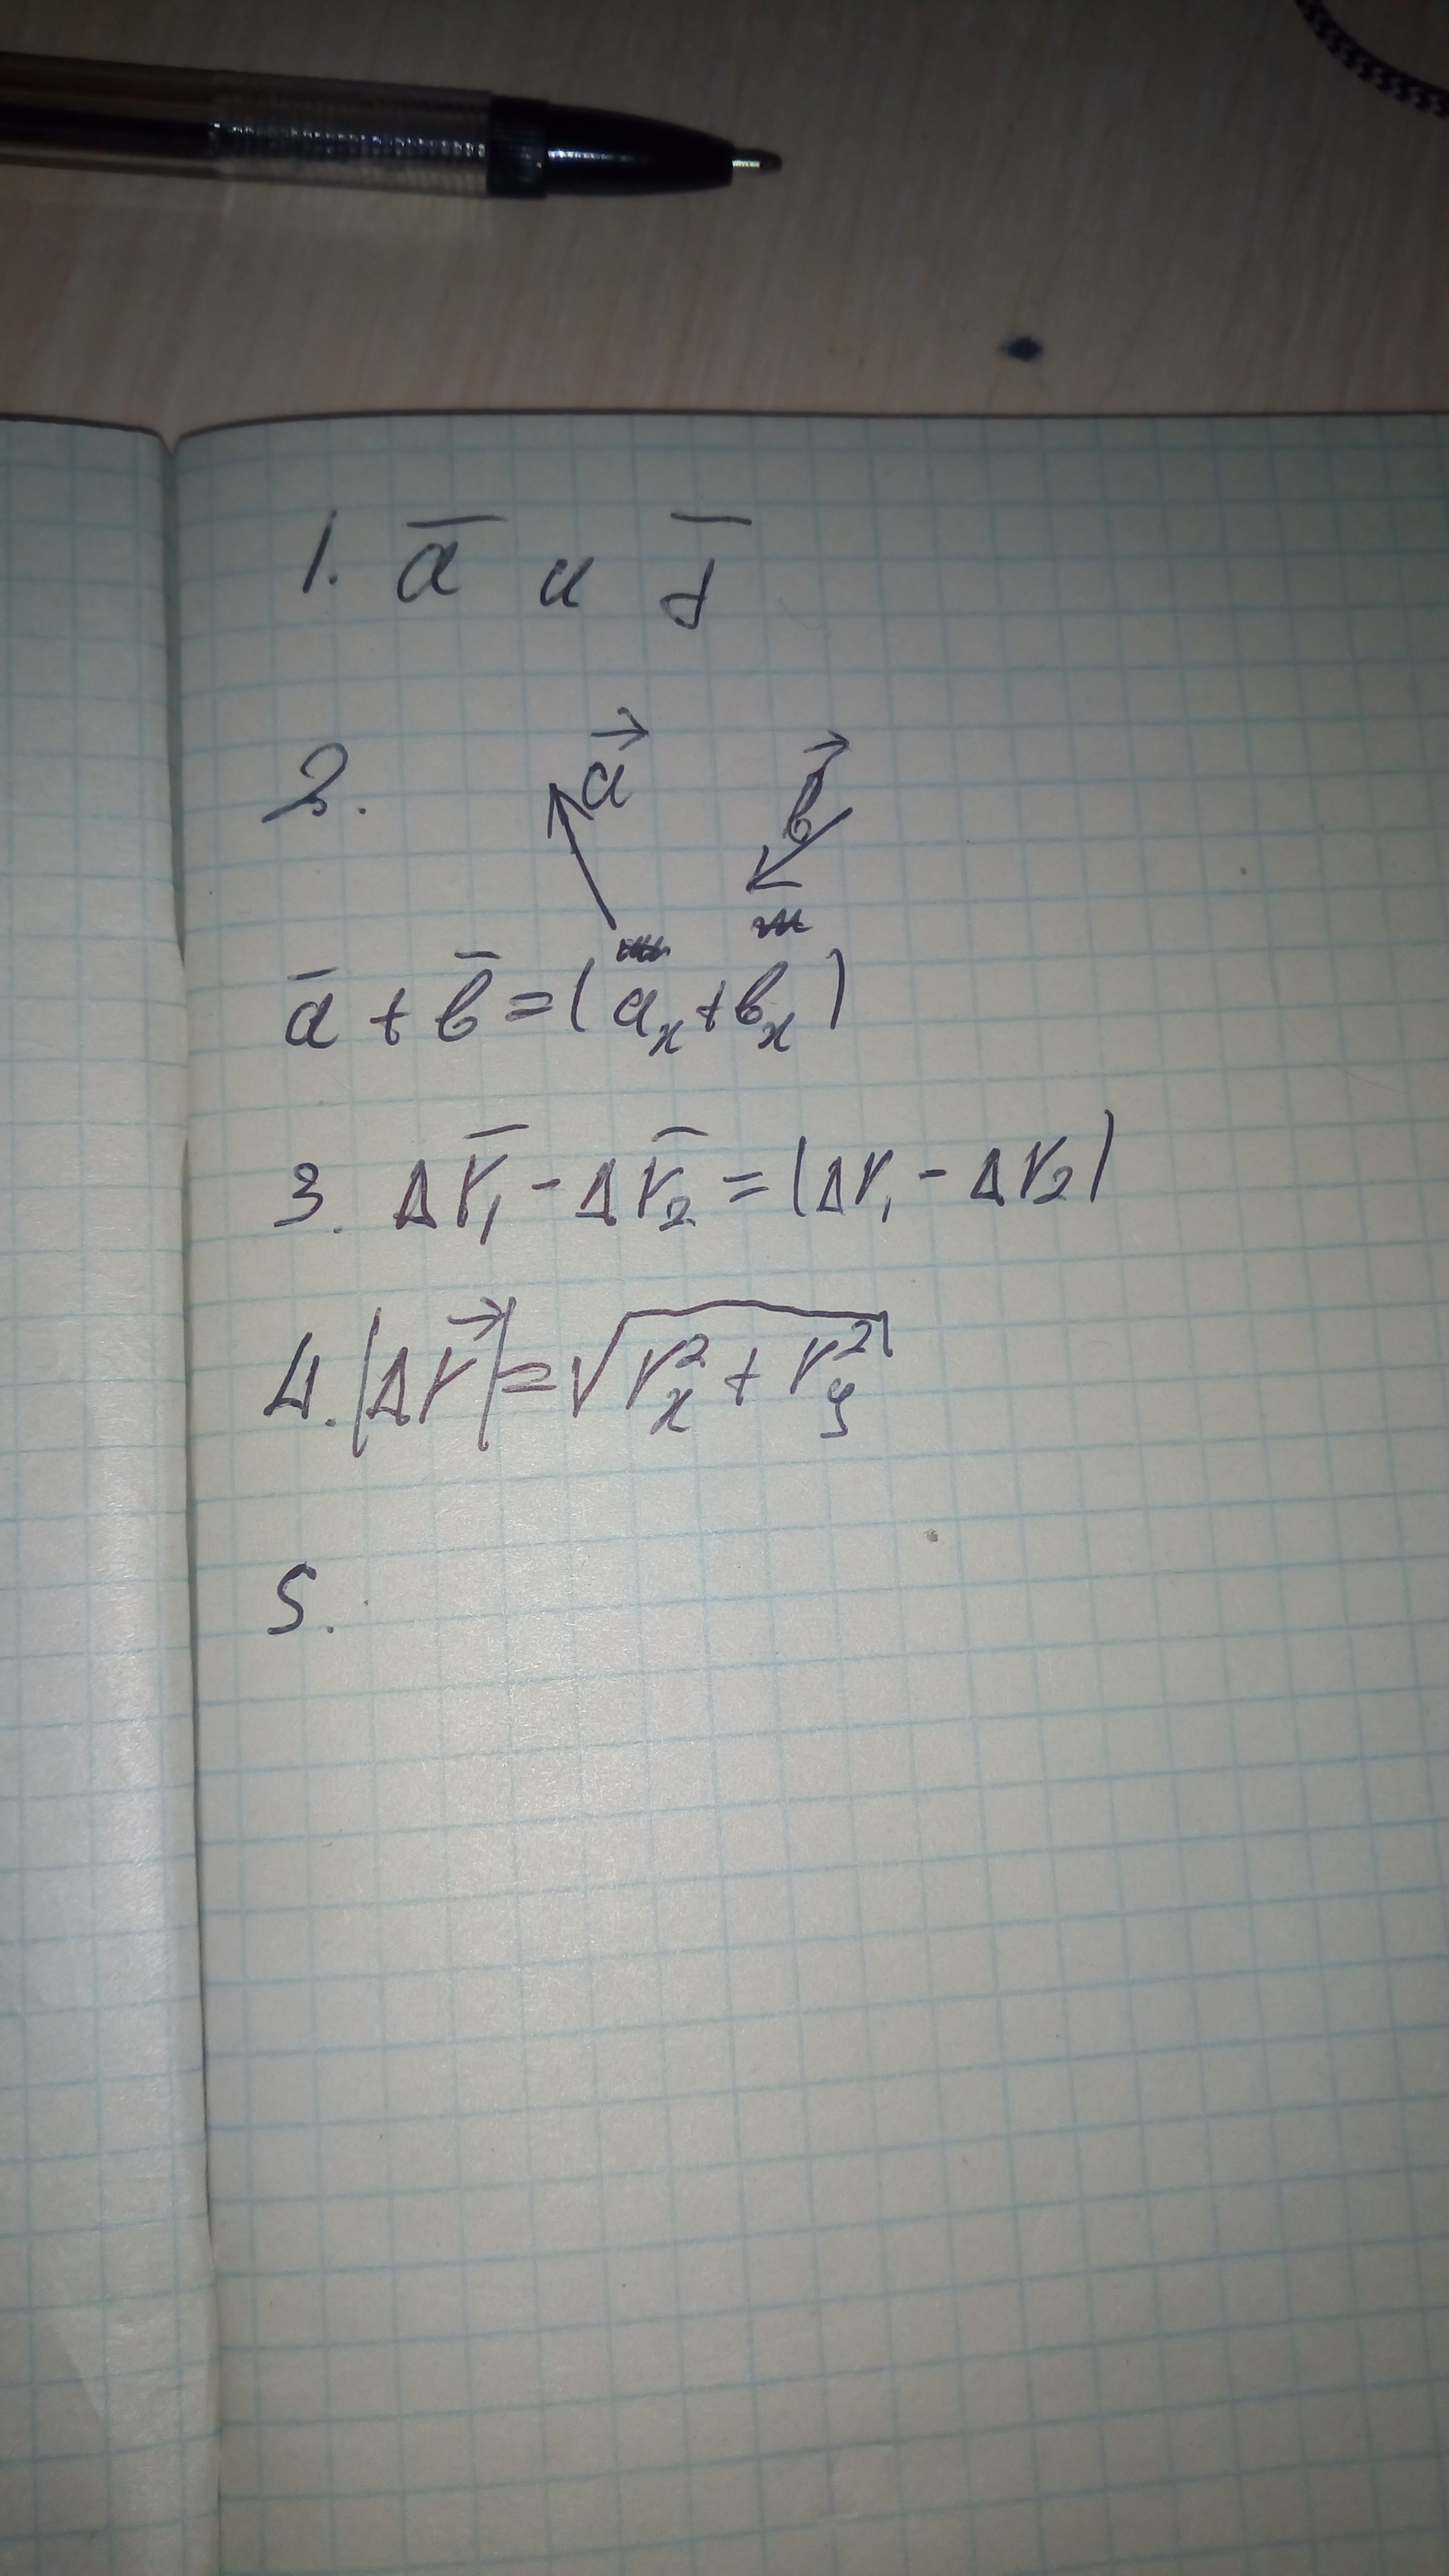 1. a̅ и d̅
2. a⃗ b⃗
a̅ + b̅ = (aₓ + bₓ)
3. Δr̅₁ - Δr̅₂ = (Δr₁ - Δr₂)
4. |Δr⃗| = √(rₓ² + r_y²)
5.